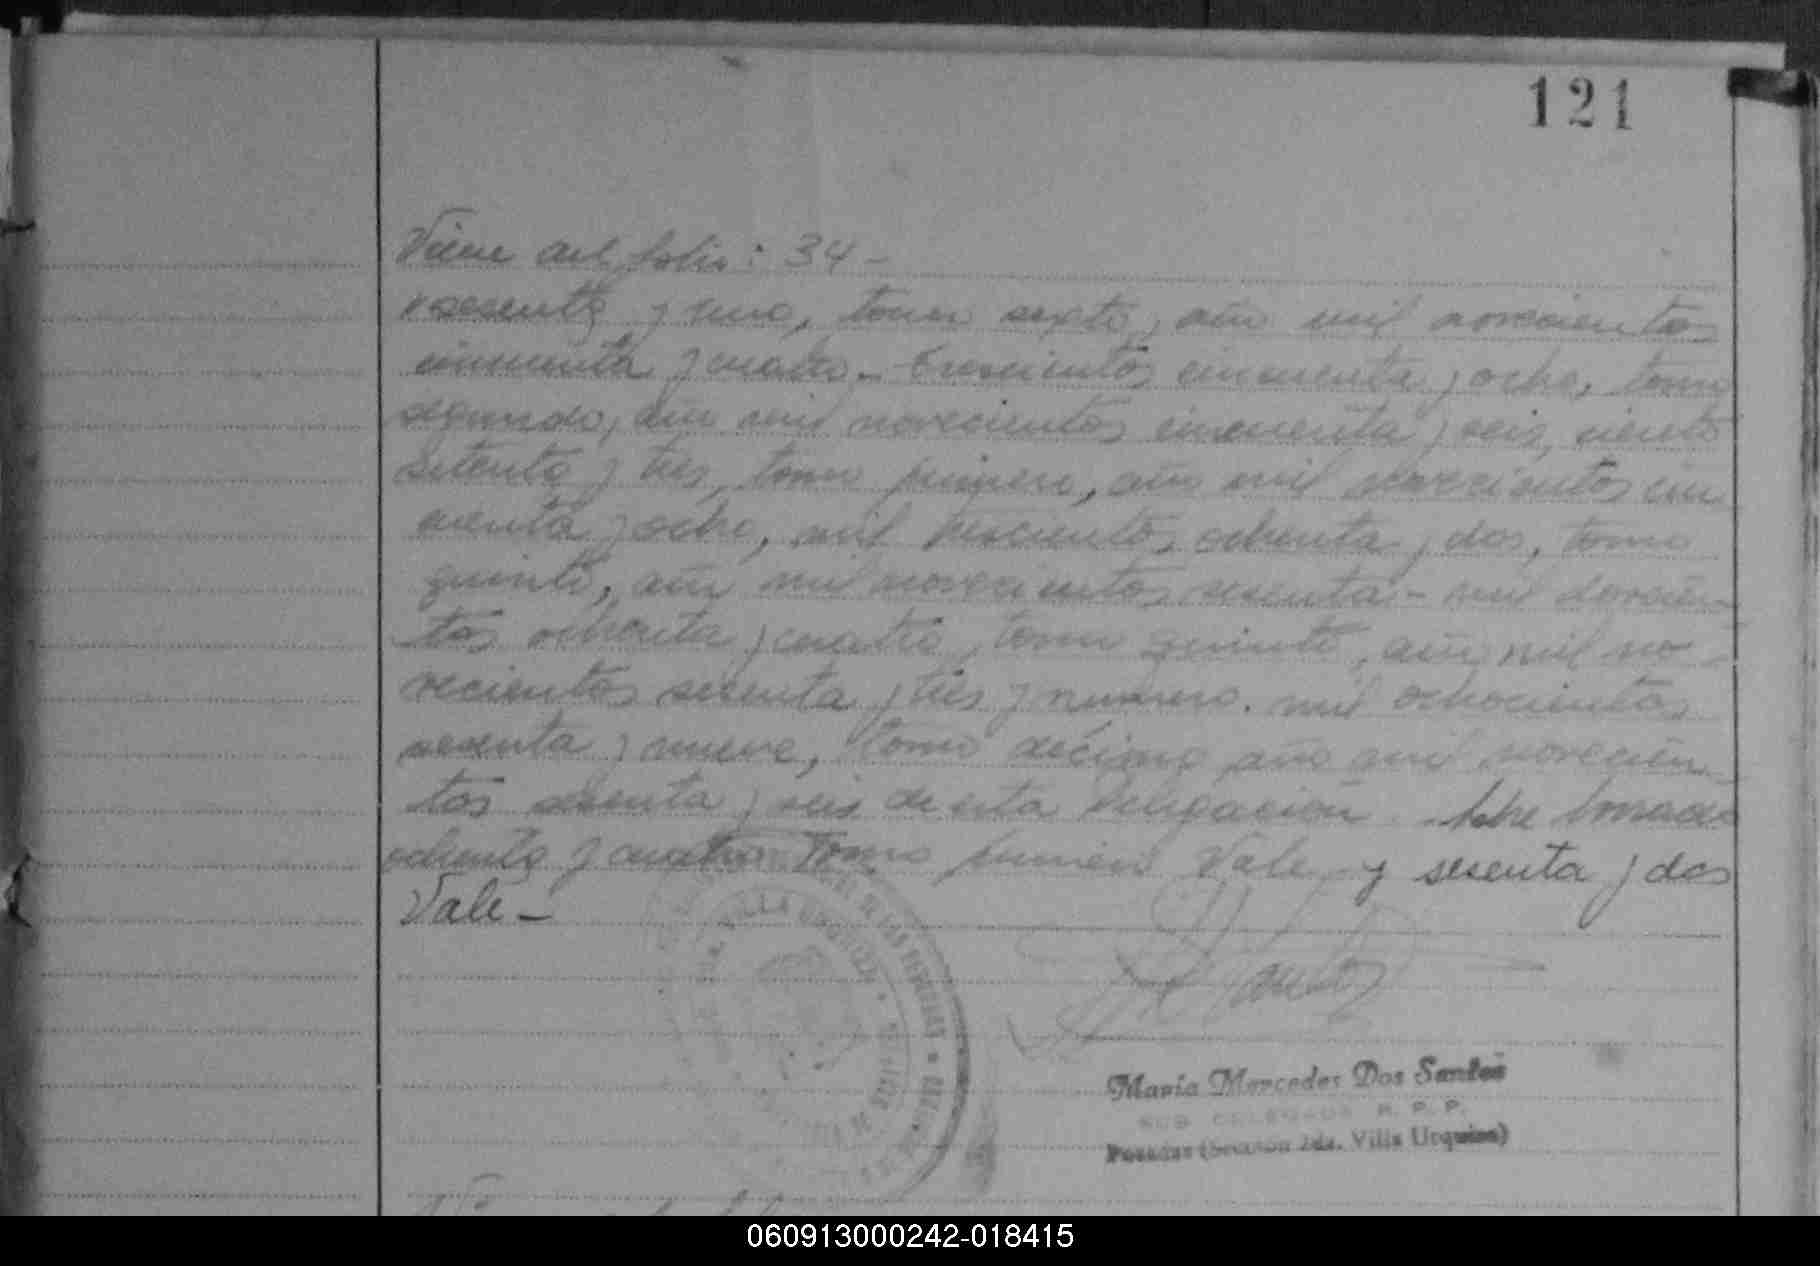 121
Viene del folio: 34 -
sesenta y uno, tomo sexto, año mil novecientos
cincuenta y cuatro - trescientos cincuenta y ocho, tomo
segundo, año mil novecientos cincuenta y seis, ciento
setenta y tres, tomo primero, año mil novecientos cin
cuenta y ocho, mil trescientos ochenta y dos, tomo
quinto, año mil novecientos sesenta - mil doscien-
tos ochenta y cuatro, tomo quinto, año mil no-
vecientos sesenta y tres y número mil ochocientos
sesenta y nueve, tomo décimo año mil novecien-
tos sesenta y seis de esta Delegación. Sobre borrado
ochenta y cuatro tomo primero Vale y sesenta y dos
Vale -
VILLA URQUIZA
DE LAS PERSONAS
María Mercedes Dos Santos
SUB DELEGADA R. P. P.
Posadas (Sección 2da. Villa Urquiza)
060913000242-018415